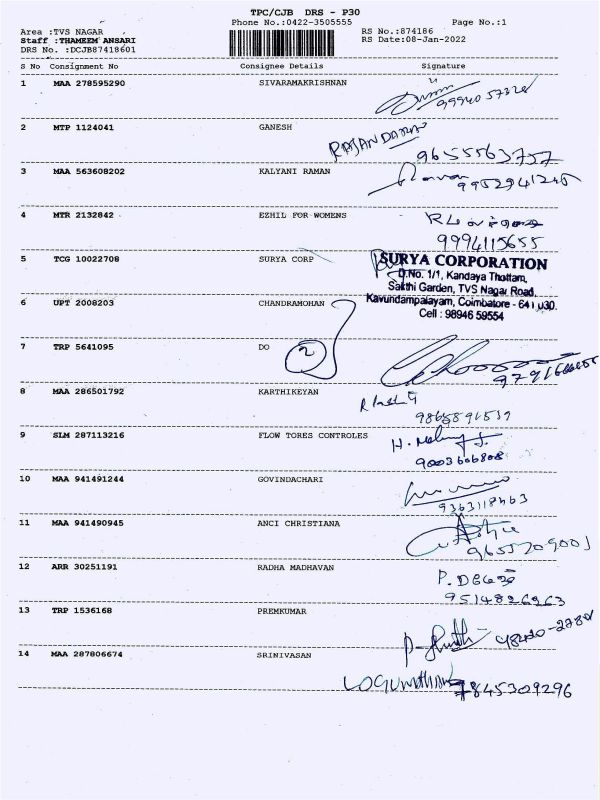 TPC/CJB DRS - P30
Phone No.:0422-3505555 Page No.:1
Area :TVS NAGAR RS No.:874186
Staff :THAMEEM ANSARI RS Date:08-Jan-2022
DRS No. :DCJB87418601
S No Consignment No Consignee Details Signature
1 MAA 278595290 SIVARAMAKRISHNAN
2 MTP 1124041 GANESH
RAJANDARAN
9655563757
3 MAA 563608202 KALYANI RAMAN
Raman
9952941245
4 MTR 2132842 EZHIL FOR WOMENS
9994115655
5 TCG 10022708 SURYA CORP
SURYA CORPORATION
D.No. 1/1, Kandaya Thottam,
Sakthi Garden, TVS Nagar Road,
Kavundampalayam, Coimbatore - 641 030.
Cell : 98946 59554
6 UPT 2008203 CHANDRAMOHAN
7 TRP 5641095 DO
2
8 MAA 286501792 KARTHIKEYAN
9 SLM 287113216 FLOW TORES CONTROLES
9003606808
10 GOVINDACHARI MAA 941491244
9363118463
11 MAA 941490945 ANCI CHRISTIANA
9655209001
12 ARR 30251191 RADHA MADHAVAN
9514826963
13 TRP 1536168 PREMKUMAR
14 MAA 287806674 SRINIVASAN
7845309296